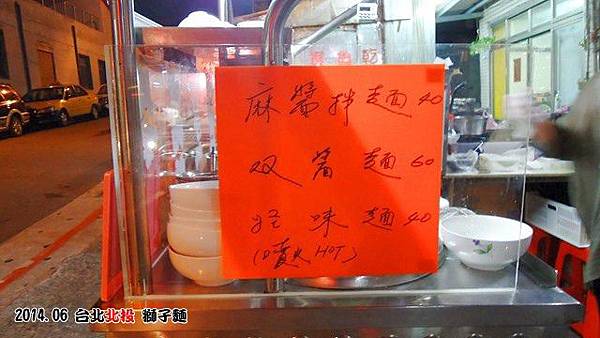 麻醬拌麵 40
双醬麵 60
怪味麵 40
(噴火HOT)
2014.06 台北北投 獅子麵